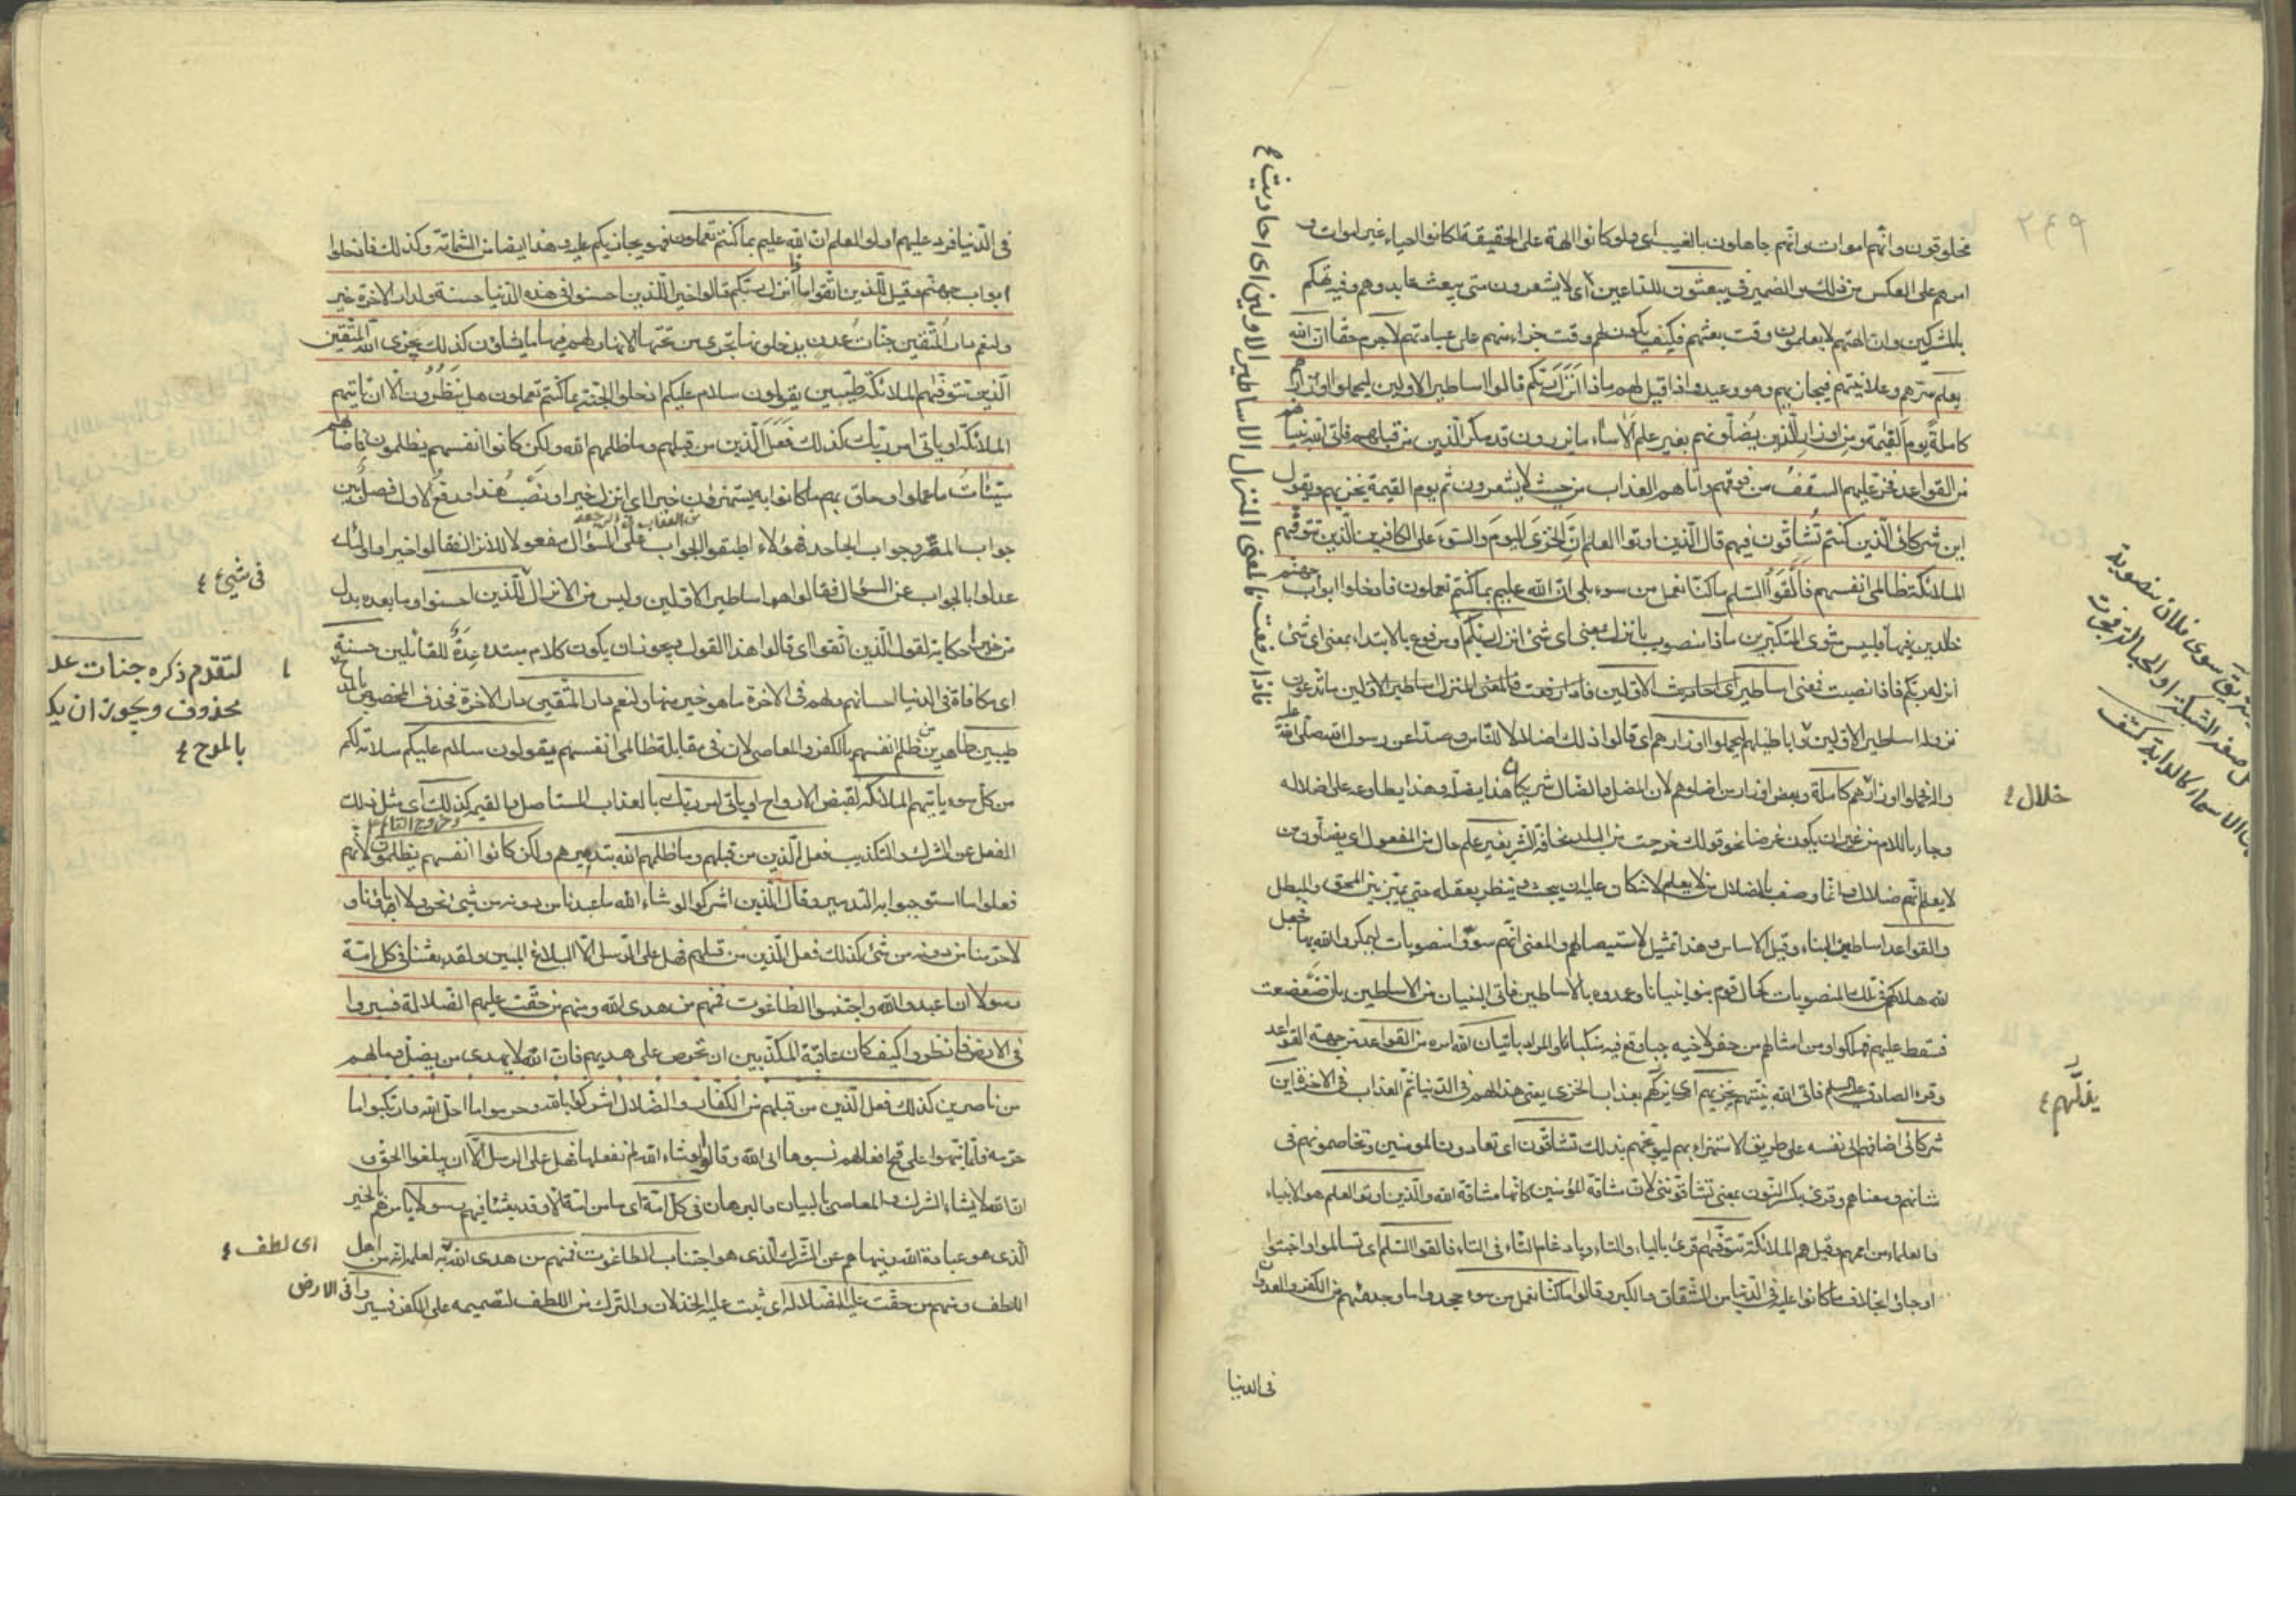 ٢٤٩
مخلوقون وانّهم اموات وانّهم جاهلون بالغيب اى ولو كانوا الهة على الحقيقة لكانوا احياء غير اموات و
امرهم على العكس من ذلك والضمير فى يبعثون للداعين اى لا يشعرون متى يبعث عابدوهم وفيه تهكم
بالمشركين وان الهتهم لا يعلمون وقت بعثهم فكيف يكون لهم وقت جزاء منهم على عبادتهم لا جرم حقا ان الله
يعلم سرهم وعلانيتهم فيجازيهم وهو وعيد واذا قيل لهم ماذا انزل ربّكم قالوا اساطير الاولين ليحملوا اوزارهم
كاملة يوم القيمة ومن اوزار الذين يضلّونهم بغير علم الا ساء ما يزرون قد مكر الّذين من قبلهم فاتى الله بنيانهم
من القواعد فخرّ عليهم السقف من فوقهم واتاهم العذاب من حيث لا يشعرون ثم يوم القيمة يخزيهم ويقول
اين شركائى الّذين كنتم تشاقّون فيهم قال الّذين اوتوا العلم انّ الخزى اليوم والسّوء على الكافرين الّذين تتوفّيهم
الملائكة ظالمى انفسهم فالقوا السّلم ما كنّا نعمل من سوء بلى انّ الله عليم بما كنتم تعملون فادخلوا ابواب جهنّم
خالدين فيها فلبئس مثوى المتكبّرين ماذا منصوب بانزل بمعنى اى شئ انزل ربّكم او مرفوع بالابتداء بمعنى اى شئ
انزله ربّكم فاذا نصبت فمعنى اساطير اى احاديث الاوّلين فاذا رفعت فالمعنى المنزل اساطير الاوّلين ما تدعون
نزوله اساطير الاوّلين واباطيلهم ليحملوا اوزارهم اى قالوا ذلك اضلالا للنّاس وصدّا عن رسول الله صلّى الله عليه
واله فحملوا اوزارهم كاملة وبعض اوزار من اضلّوهم لان المضل والضالّ شريكان هذا يضلّه وهذا يطاوعه على اضلاله
وجاء باللام من غير ان يكون غرضا نحو قولك خرجت من البلد مخافة الشر بغير علم حال من المفعول اى يضلّون من
لا يعلم انّهم ضلال وانّما وصف بالضلال من لا يعلم لانّه كان عليه ان يبحث وينظر بعقله حتى يميّز بين المحق والمبطل
والقواعد اساطين البناء وقيل الاساس وهذا تمثيل لاستيصالهم والمعنى انّهم سوّوا منصوبات ليمكروا الله بها فجعل
الله هلاكهم فى تلك المنصوبات كحال قوم بنوا بنيانا وعمدوه بالاساطين فاتى البنيان من الاساطين بان ضعضعت
فسقط عليهم فهلكوا ومن امثالهم من حفر لاخيه جبا وقع فيه منكبا والمراد باتيان الله امره من القواعد من جهة القواعد
وقرء الصادق عليه السلم فاتى الله بيتهم يخزيهم اى يذلّهم بعذاب الخزى يعنى هذا لهم فى الدّنيا ثمّ العذاب فى الاخرة اين
شركائى اضافهم الى نفسه على طريق الاستهزاء بهم ليوبّخهم بذلك تشاقّون اى تعادون المؤمنين وتخاصمونهم فى
شانهم ومعناهم وقرئ بكسر النّون بمعنى تشاقّوننى لان مشاقة المؤمنين كانّها مشاقة الله والّذين اوتوا العلم هم الانبياء
والعلماء من اممهم وقيل هم الملائكة تتوفّيهم قرئ بالياء والتاء وبادغام التّاء فى التاء فالقوا السّلم اى تسالموا واخبتوا
وجاؤا بخلاف ما كانوا عليه فى الدّنيا من الشّقاق والكبر وقالوا ما كنّا نعمل من سوء جحدوا ما وجد منهم من الكفر والعدوان
فى الدنيا
فاذا رفعت فالمعنى المنزل الاساطير الاولين اى احاديث
ضلال
يذلّهم
فى الدّنيا فرد عليهم اولوا العلم انّ الله عليم بما كنتم تعملون فهو يجازيكم عليه وهذا ايضا من الشماتة وكذلك فادخلوا
ابواب جهنّم وقيل للّذين اتّقوا ماذا انزل ربّكم قالوا خيرا للّذين احسنوا فى هذه الدّنيا حسنة ولدار الاخرة خير
ولنعم دار المتّقين جنّات عدن يدخلونها تجرى من تحتها الانهار لهم فيها ما يشاؤن كذلك يجزى الله المتّقين
الّذين تتوفّيهم الملائكة طيّبين يقولون سلام عليكم ادخلوا الجنّة بما كنتم تعملون هل ينظرون الّا ان تاتيهم
الملائكة او ياتى امر ربّك كذلك فعل الّذين من قبلهم وما ظلمهم الله ولكن كانوا انفسهم يظلمون فاصابهم
سيّئات ما عملوا وحاق بهم ما كانوا به يستهزؤن خيرا اى انزل خيرا ونصب هذا ورفع الاول فصلا بين
جواب المقرّ وجواب الجاحد فهؤلاء اطبقوا الجواب على السّؤال مفعولا للانزال فقالوا خيرا واولئك
عدلوا بالجواب عن السؤال فقالوا هو اساطير الاوّلين وليس من الانزال للّذين احسنوا وما بعده بدل
من خيرا حكاية لقول الّذين اتّقوا اى قالوا هذا القول ويجوز ان يكون كلام مبتدء عدة للقائلين حسنة
اى مكافاة فى الدنيا باحسانهم ولهم فى الاخرة ما هو خير منها ولنعم دار المتّقين دار الاخرة فحذف المخصوص بالمدح
طيّبين طاهرين من ظلم انفسهم بالكفر والمعاصى لان فى مقابلة ظالمى انفسهم يقولون سلام عليكم سلامة لكم
من كلّ سوء ياتيهم الملائكة لقبض الارواح او ياتى امر ربّك بالعذاب المستاصل او القيمة كذلك اى مثل ذلك
الفعل من الشرك والتكذيب فعل الّذين من قبلهم وما ظلمهم الله بتدميرهم ولكن كانوا انفسهم يظلمون لانّهم
فعلوا ما استوجبوا به التدمير وقال الّذين اشركوا لو شاء الله ما عبدنا من دونه من شئ نحن ولا اباؤنا و
لا حرّمنا من دونه من شئ كذلك فعل الّذين من قبلهم فهل على الرّسل الّا البلاغ المبين ولقد بعثنا فى كلّ امّة
رسولا ان اعبدوا الله واجتنبوا الطّاغوت فمنهم من هدى الله ومنهم من حقّت عليهم الضّلالة فسيروا
فى الارض فانظروا كيف كان عاقبة المكذّبين ان تحرص على هديهم فانّ الله لا يهدى من يضلّ وما لهم
من ناصرين كذلك فعل الّذين من قبلهم من الكفّار والضّلال اشركوا بالله وحرموا ما احل الله وارتكبوا ما
حرّمه فلمّا نبّهوا على قبح افعالهم نسبوها الى الله وقالوا لو شاء الله لم نفعلها فهل على الرسل الّا ان يبلغوا الحق و
انّ الله لا يشاء الشرك والمعاصى بالبيان والبرهان فى كلّ امّة اى ما من امّة الّا وقد بعثنا فيهم رسولا يامرهم بالخير
الّذى هو عبادة الله وينهاهم عن الشّرك الّذى هو اجتناب الطاغوت فمنهم من هدى الله لعلمه انّه من اهل
اللطف ومنهم من حقّت عليه الضّلالة اى ثبت عليه الخذلان والترك من اللطف لتصميمه على الكفر فسيروا فى الارض
فى شئ
لتقدّم ذكره جنات عد
محذوف ويجوز ان يك
بالمدح
اى لطف